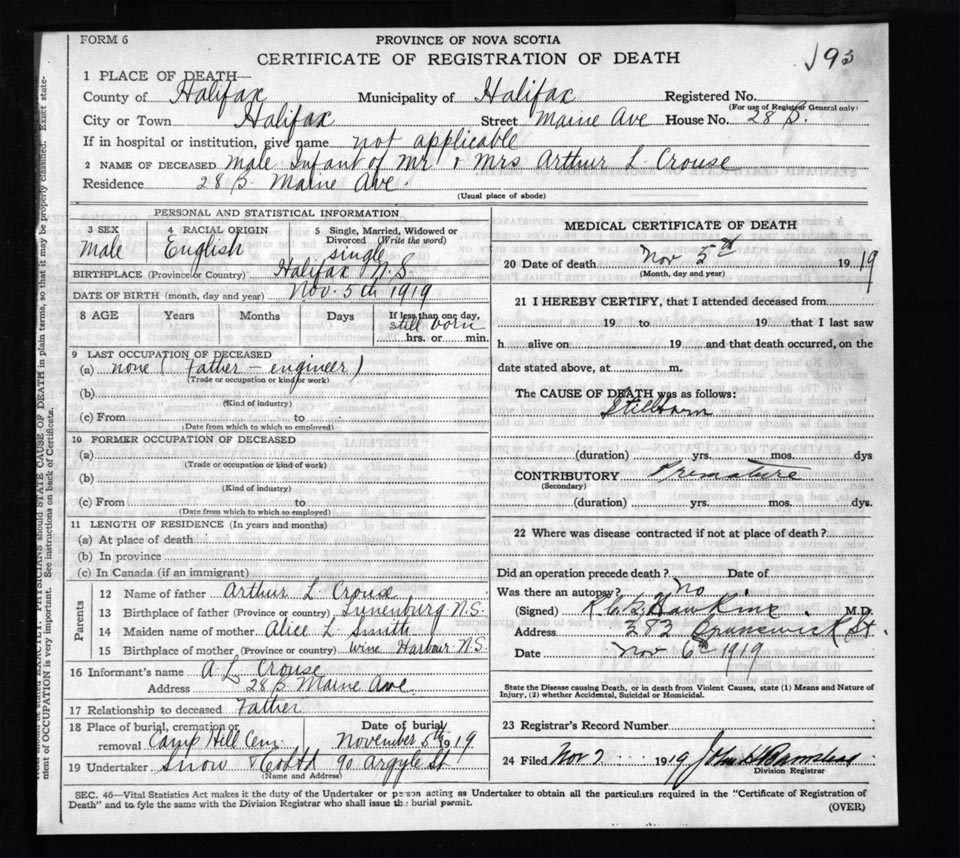 FORM 6
PROVINCE OF NOVA SCOTIA
CERTIFICATE OF REGISTRATION OF DEATH
193
1 PLACE OF DEATH—
County of Halifax Municipality of Halifax Registered No.
(For use of Registrar General only)
City or Town Halifax Street Maine Ave House No. 28 B.
If in hospital or institution, give name not applicable
2 NAME OF DECEASED Male Infant of Mr. & Mrs Arthur L. Crouse
Residence 28 B. Maine Ave.
(Usual place of abode)
PERSONAL AND STATISTICAL INFORMATION
3 SEX 4 RACIAL ORIGIN 5 Single, Married, Widowed or Divorced (Write the word)
Male English single
BIRTHPLACE (Province or Country) Halifax N.S.
DATE OF BIRTH (month, day and year) Nov. 5th 1919
8 AGE Years Months Days If less than one day,
still born
hrs. or min.
9 LAST OCCUPATION OF DECEASED
(a) none ( Father - engineer )
(Trade or occupation or kind or work)
(b)
(Kind of industry)
(c) From to
(Date from which to which so employed)
10 FORMER OCCUPATION OF DECEASED
(a)
(Trade or occupation or kind of work)
(b)
(Kind of industry)
(c) From to
(Date from which to which so employed)
11 LENGTH OF RESIDENCE (In years and months)
(a) At place of death
(b) In province
(c) In Canada (if an immigrant)
Parents
12 Name of father Arthur L. Crouse
13 Birthplace of father (Province or country) Lunenburg N.S.
14 Maiden name of mother Alice L Smith
15 Birthplace of mother (Province or country) Wine Harbour N.S.
16 Informant's name A. L. Crouse
Address 28 B Maine Ave.
17 Relationship to deceased Father
18 Place of burial, cremation or removal Camp Hill Cem. Date of burial November 5th 1919
19 Undertaker Snow & 90 Argyle St
(Name and Address)
MEDICAL CERTIFICATE OF DEATH
20 Date of death Nov 5th 1919
(Month, day and year)
21 I HEREBY CERTIFY, that I attended deceased from
19 to 19 that I last saw
h alive on 19 and that death occurred, on the
date stated above, at m.
The CAUSE OF DEATH was as follows:
Stillborn
(duration) yrs. mos. dys
CONTRIBUTORY Premature
(Secondary)
(duration) yrs. mos. dys.
22 Where was disease contracted if not at place of death?
Did an operation precede death? Date of
Was there an autopsy? No
(Signed) Hawkins M.D.
Address 282 Brunswick St.
Date Nov 6th 1919
State the Disease causing Death, or in death from Violent Causes, state (1) Means and Nature of
Injury, (2) whether Accidental, Suicidal or Homicidal.
23 Registrar's Record Number
24 Filed Nov 7 1919 John
Division Registrar
SEC. 46—Vital Statistics Act makes it the duty of the Undertaker or person acting as Undertaker to obtain all the particulars required in the "Certificate of Registration of
Death" and to fyle the same with the Division Registrar who shall issue the burial permit.
(OVER)
PHYSICIANS should STATE CAUSE OF DEATH in plain terms, so that it may be properly classified. Exact state-
ment of OCCUPATION is very important. See instructions on back of Certificate.